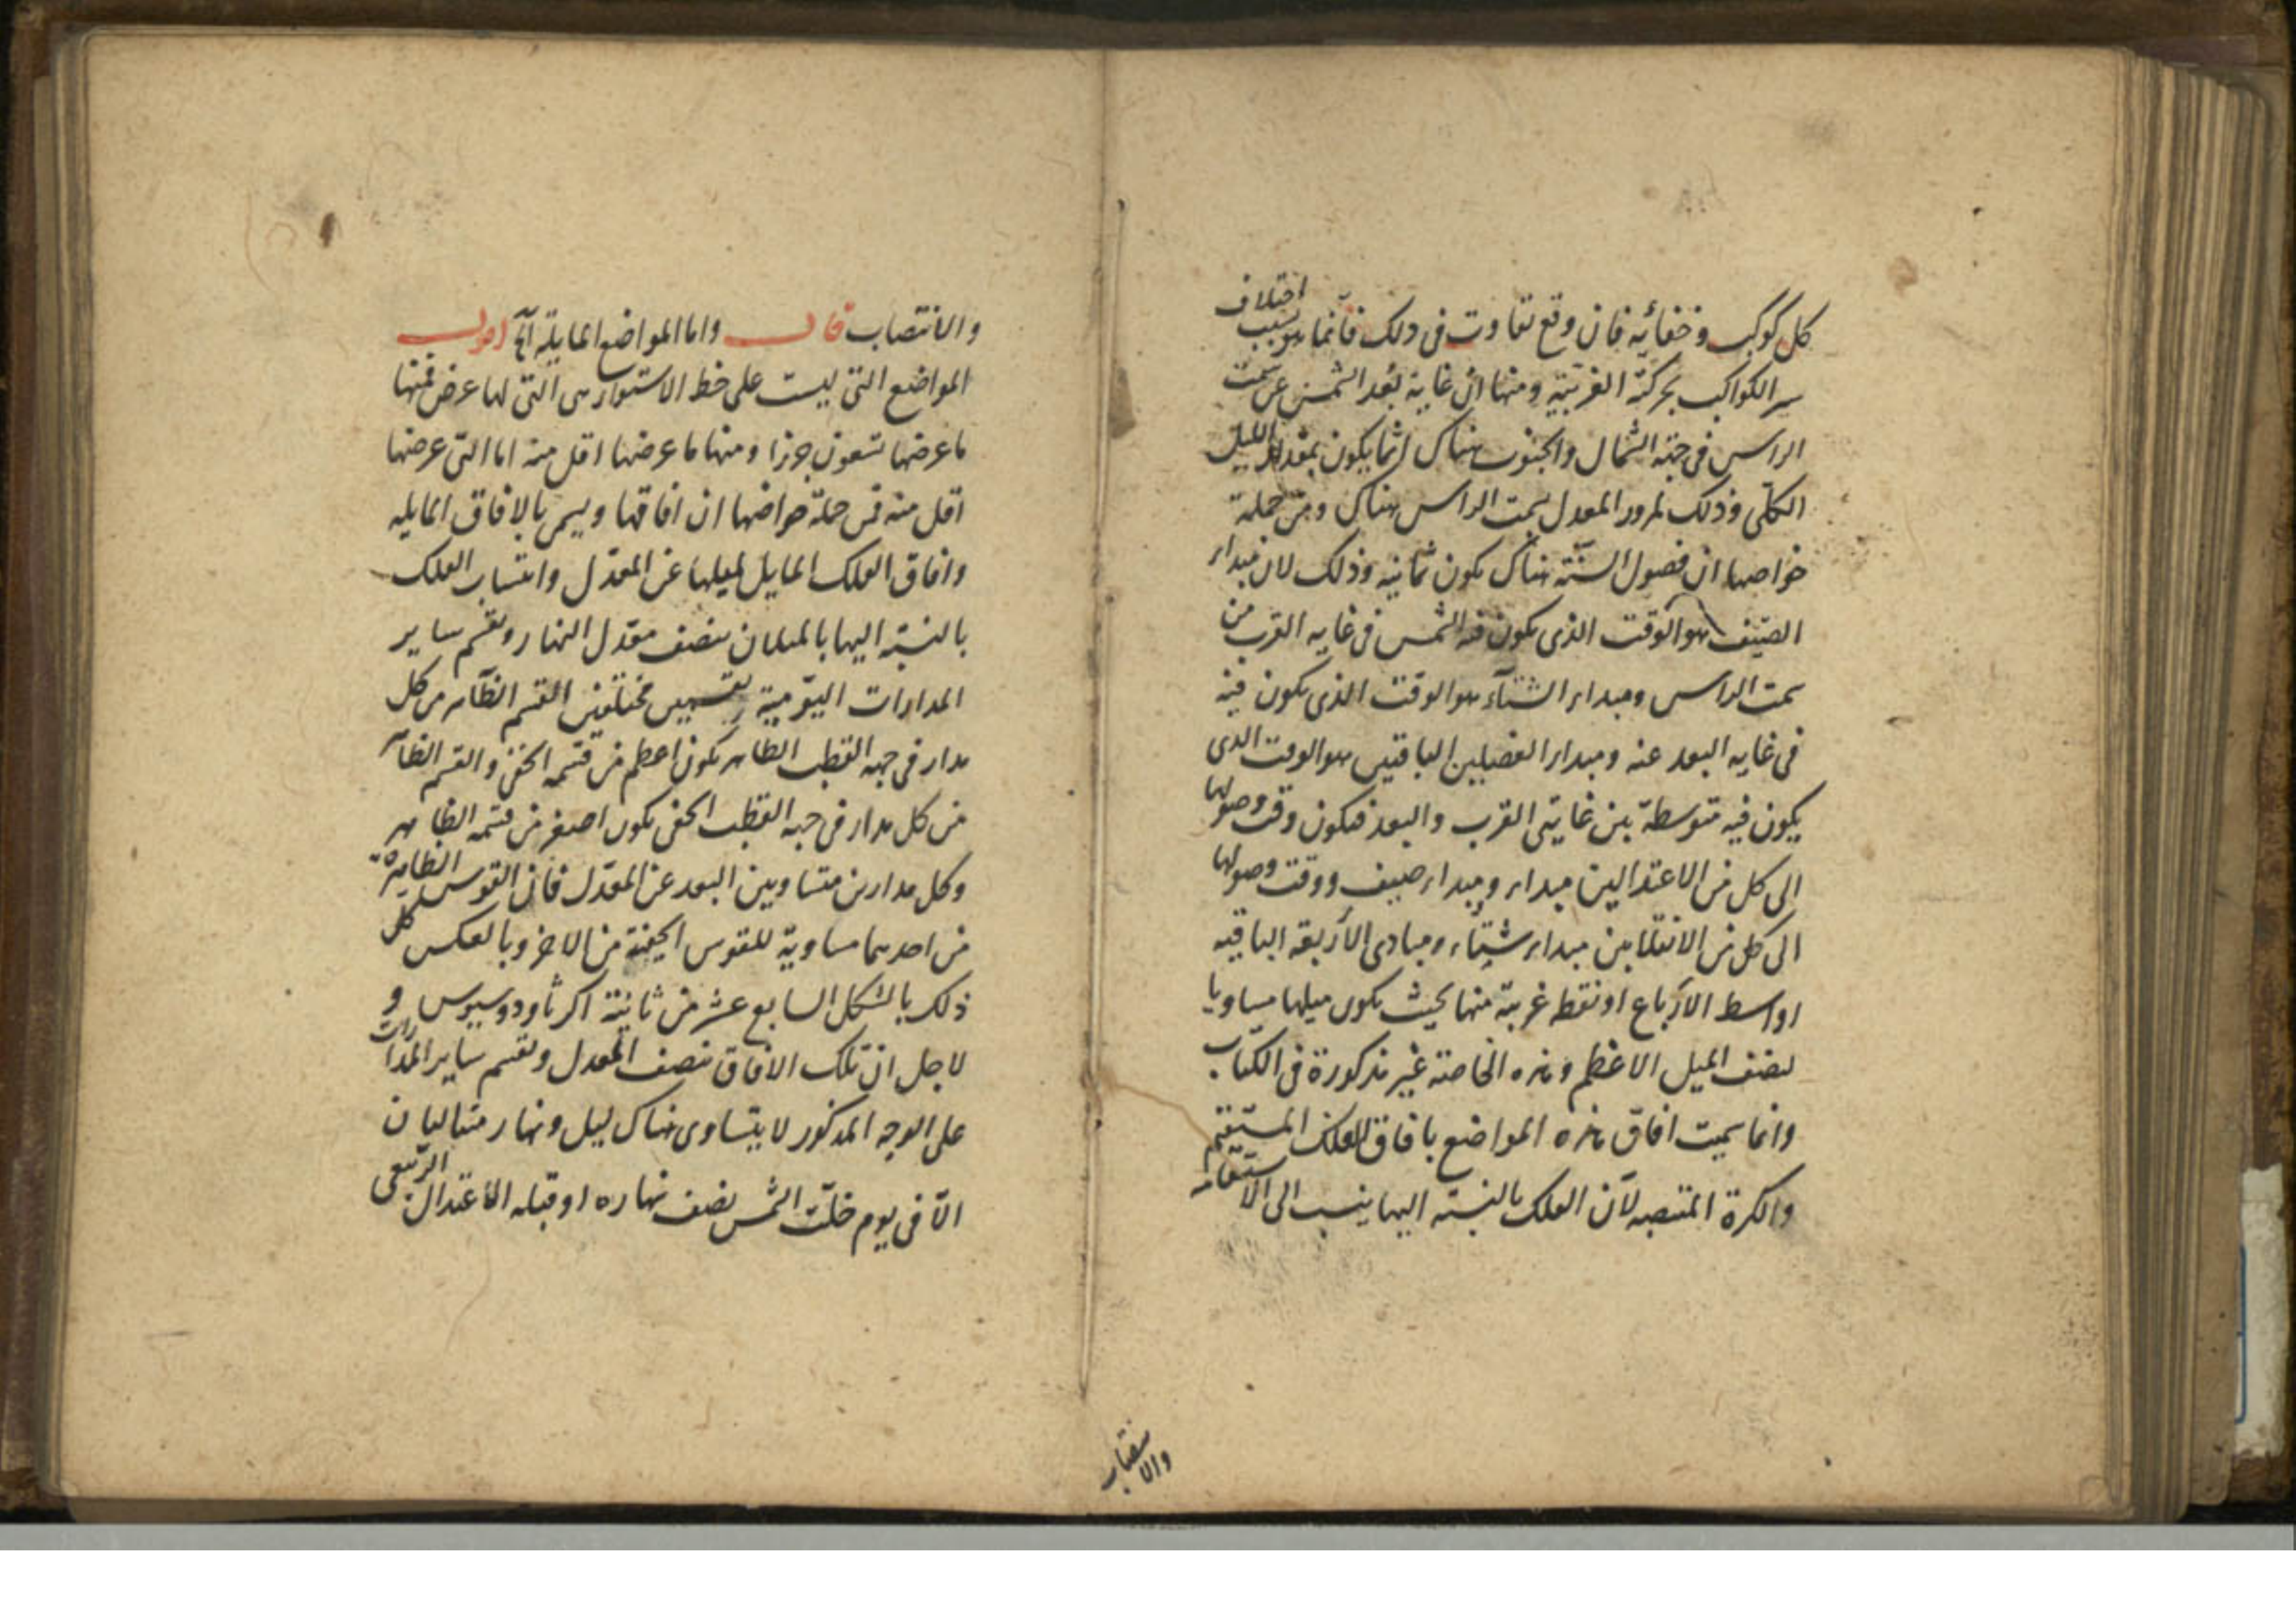 كل كوكب وخفائه فان وقع تفاوت فى ذلك فانما هو بسبب اختلاف
سير الكواكب بحركته الغربية ومنها ان غاية بعد الشمس عن سمت
الراس فى جهة الشمال والجنوب هناك انما يكون بمقدار الميل
الكلى وذلك لمرور المعدل بسمت الراس هناك ومن جملة
خواصها ان فصول السنة هناك يكون ثمانيه وذلك لان مبداء
الصيف هو الوقت الذى يكون فيه الشمس فى غايه القرب من
سمت الراس ومبداء الشتآء هو الوقت الذى يكون فيه
فى غايه البعد عنه ومبداء الفصلين الباقيين هو الوقت الذى
يكون فيه متوسطة بين غايتى القرب والبعد فيكون وقت وصولها
الى كل من الاعتدالين مبداء ومبداء صيف ووقت وصولها
الى كل من الانقلابين مبداء شتاء ومبادى الأربعة الباقيه
اواسط الأرباع او نقط غريبة منها بحيث يكون ميلها مساويا
لنصف الميل الاعظم وهذه الخاصة غير مذكورة فى الكتاب
وانما سميت افاق هذه المواضع بافاق الفلك المستقيم
والكرة المنتصبه لأن الفلك بالنسبة اليها ينسب الى الاستقامه
والانتصاب قال واما المواضع المايلة آلخ اقول
المواضع التى ليست على خط الاستواء هى التى لها عرض فمنها
ما عرضها تسعون جزءا ومنها ما عرضها اقل منه اما التى عرضها
اقل منه فمن جملة خواصها ان افاقها ويسمى بالافاق المايله
وافاق الفلك المايل لميلها عن المعدل وانتساب الفلك
بالنسبة اليها بالميلان ينصف معدل النهار ويقسم ساير
المدارات اليومية بقسمين مختلفين القسم الظاهر من كل
مدار فى جهه القطب الظاهر يكون اعظم من قسمه الخفى والقسم الظآ
من كل مدار فى جهه القطب الخفى يكون اصغر من قسمه الظاهر
وكل مدارين متساويين البعد عن المعدل فان القوس الظاهرة
من احدهما مساوية للقوس الخفية من الاخر وبالعكس كل
ذلك بالشكل السابع عشر من ثانية اكر ثاودوسيوس و
لاجل ان تلك الافاق ينصف المعدل ويقسم ساير المدارات
على الوجه المذكور لا يتساوى هناك ليل ونهار متتاليان
الّا فى يوم حلّت الشمس نصف نهاره او قبله الاعتدال الربيعى